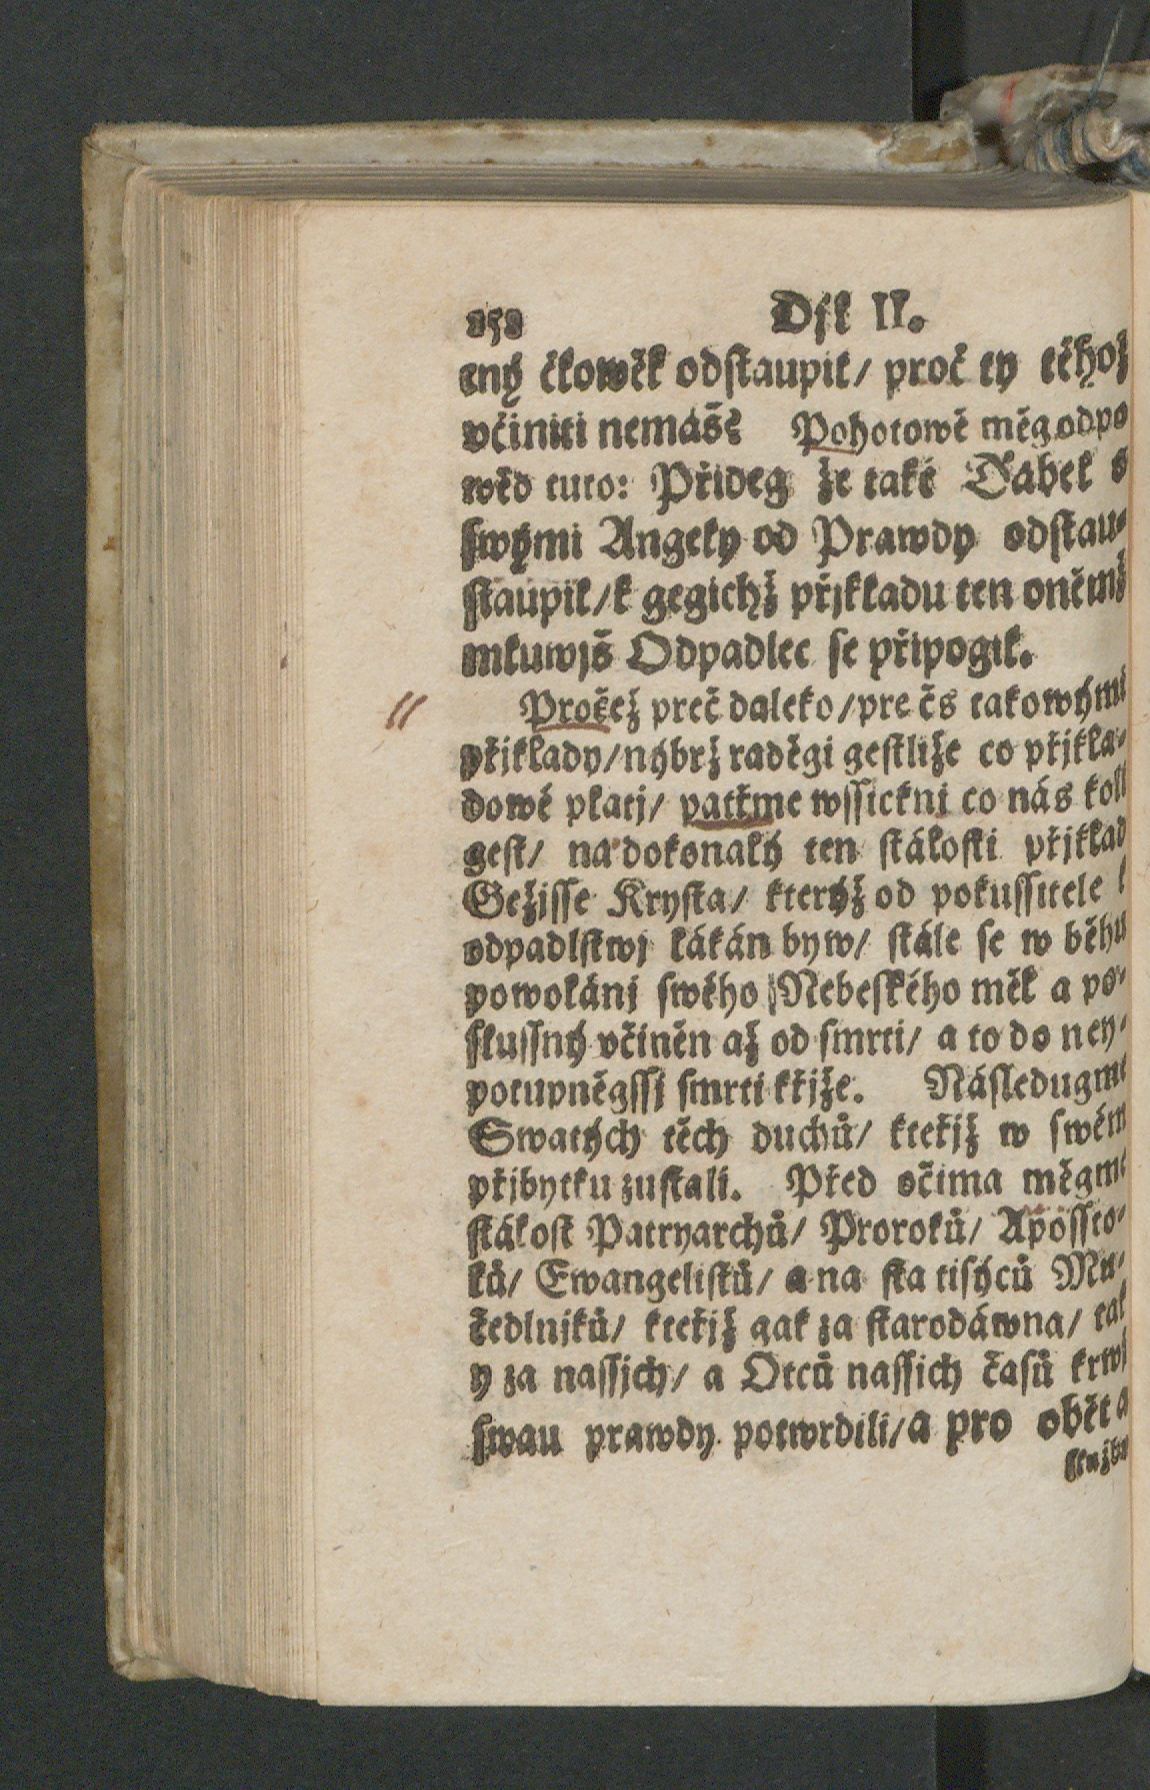 258 Djl II.
cný čłowěk odstaupił/ proč ty těhož
včiniti nemáš? Pohotowě měg odpo
wěd tuto: Přideg že také Ďábel s
swými Angeły od Prawdy odstau-
staupił/ k gegichž přjkładu ten oněmž
młuwjš Odpadlec se připogił.
Pročež preč daleko/ pre čs takowými
přjklady/ nýbrž raděgi gestliže co přjkla-
dowé płatj/ patřme wssickni co nás koli
gest/ na dokonałý ten stáłosti přjklad
Gežisse Krysta/ kterýž od pokussitele k
odpadlstwj łákán byw/ stále se w běhu
powołánj swého Nebeského měl a po-
slussný včiněn až od smrti/ a to do ney-
potupněgssj smrti křjže. Následugme
Swatých těch duchů/ kteřjž w swém
přjbytku zustali. Před očima měgme
stáłost Patryarchů/ Proroků/ Aposso-
łů/ Ewangelistů/ a na sta tisýců Mu-
čedlnjků/ kteřjž gak za starodáwna/ tak
y za nassjch/ a Otců nassich časů krwj
swau prawdy potwrdili/ a pro obět a
słužbu